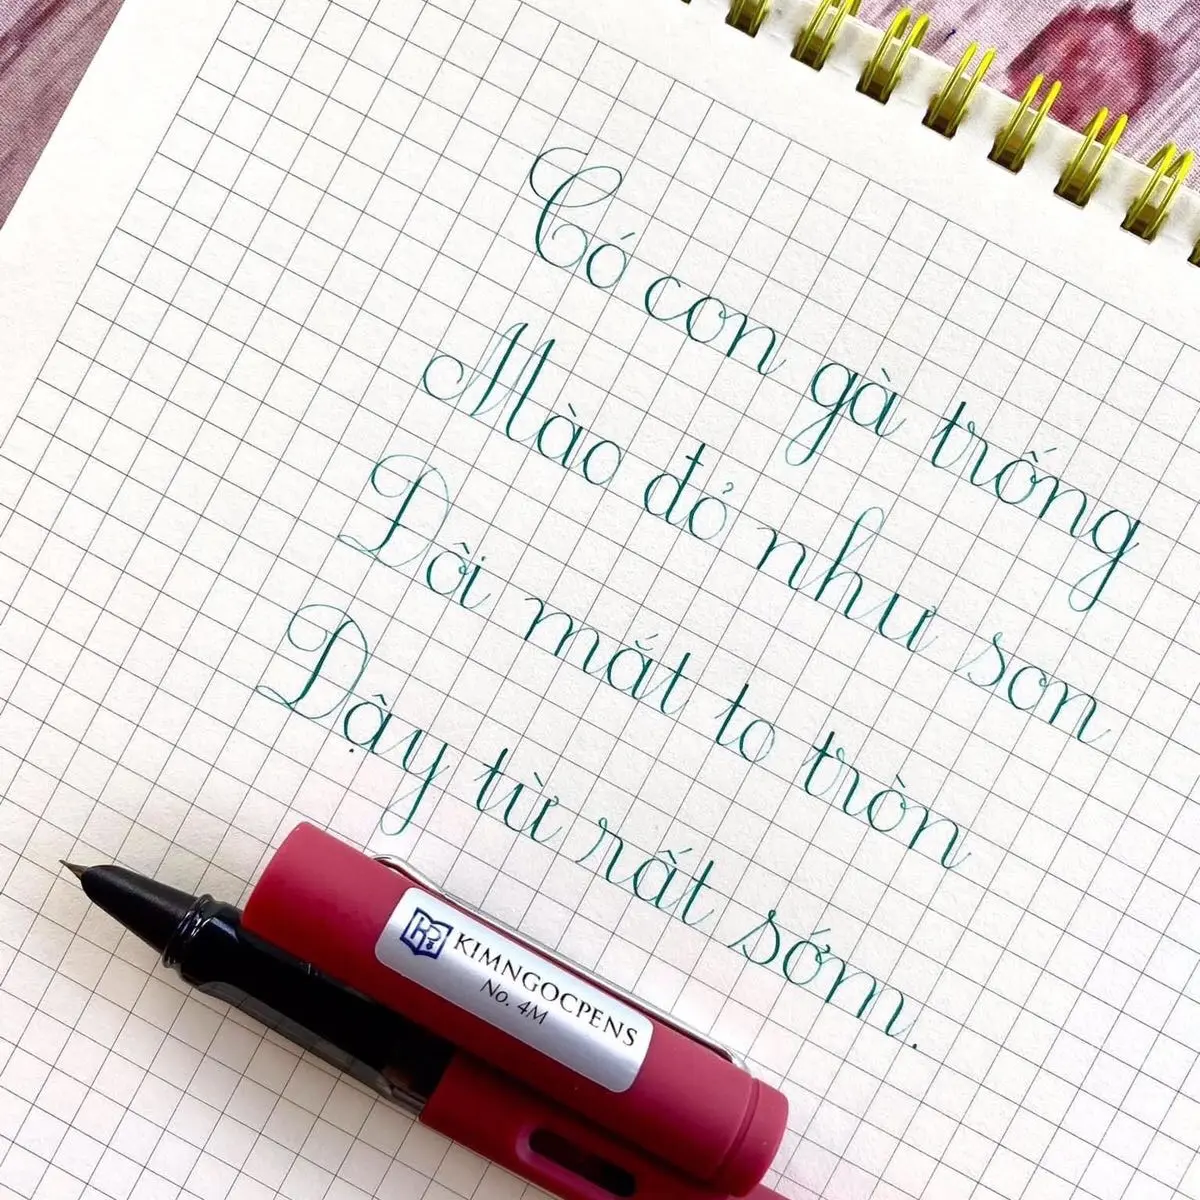 Có con gà trống
Mào đỏ như son
Đôi mắt to tròn
Dậy từ rất sớm.
KIMNGOCPENS
No. 4M